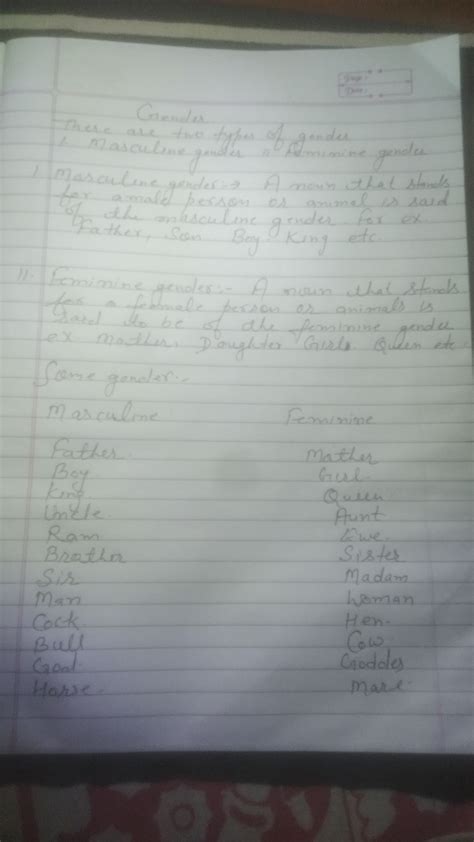 Page:
Date:
Gender
There are two types of gender
1. Masculine gender 11 Feminine gender
1. Masculine gender:-> A noun that stands
for a male person or animal is said
of the masculine gender For ex.
Father, Son Boy King etc.
11. Feminine gender:- A noun that stands
for a female person or animals is
said to be of the feminine gender
ex mother, Doughter Girls Queen etc
Some gender:-
Masculine Feminine
Father Mather
Boy Girl
King Queen
Uncle Aunt
Ram Ewe
Brother Sister
Sir Madam
Man Woman
Cock Hen
Bull Cow
Goddes
Horse Mare